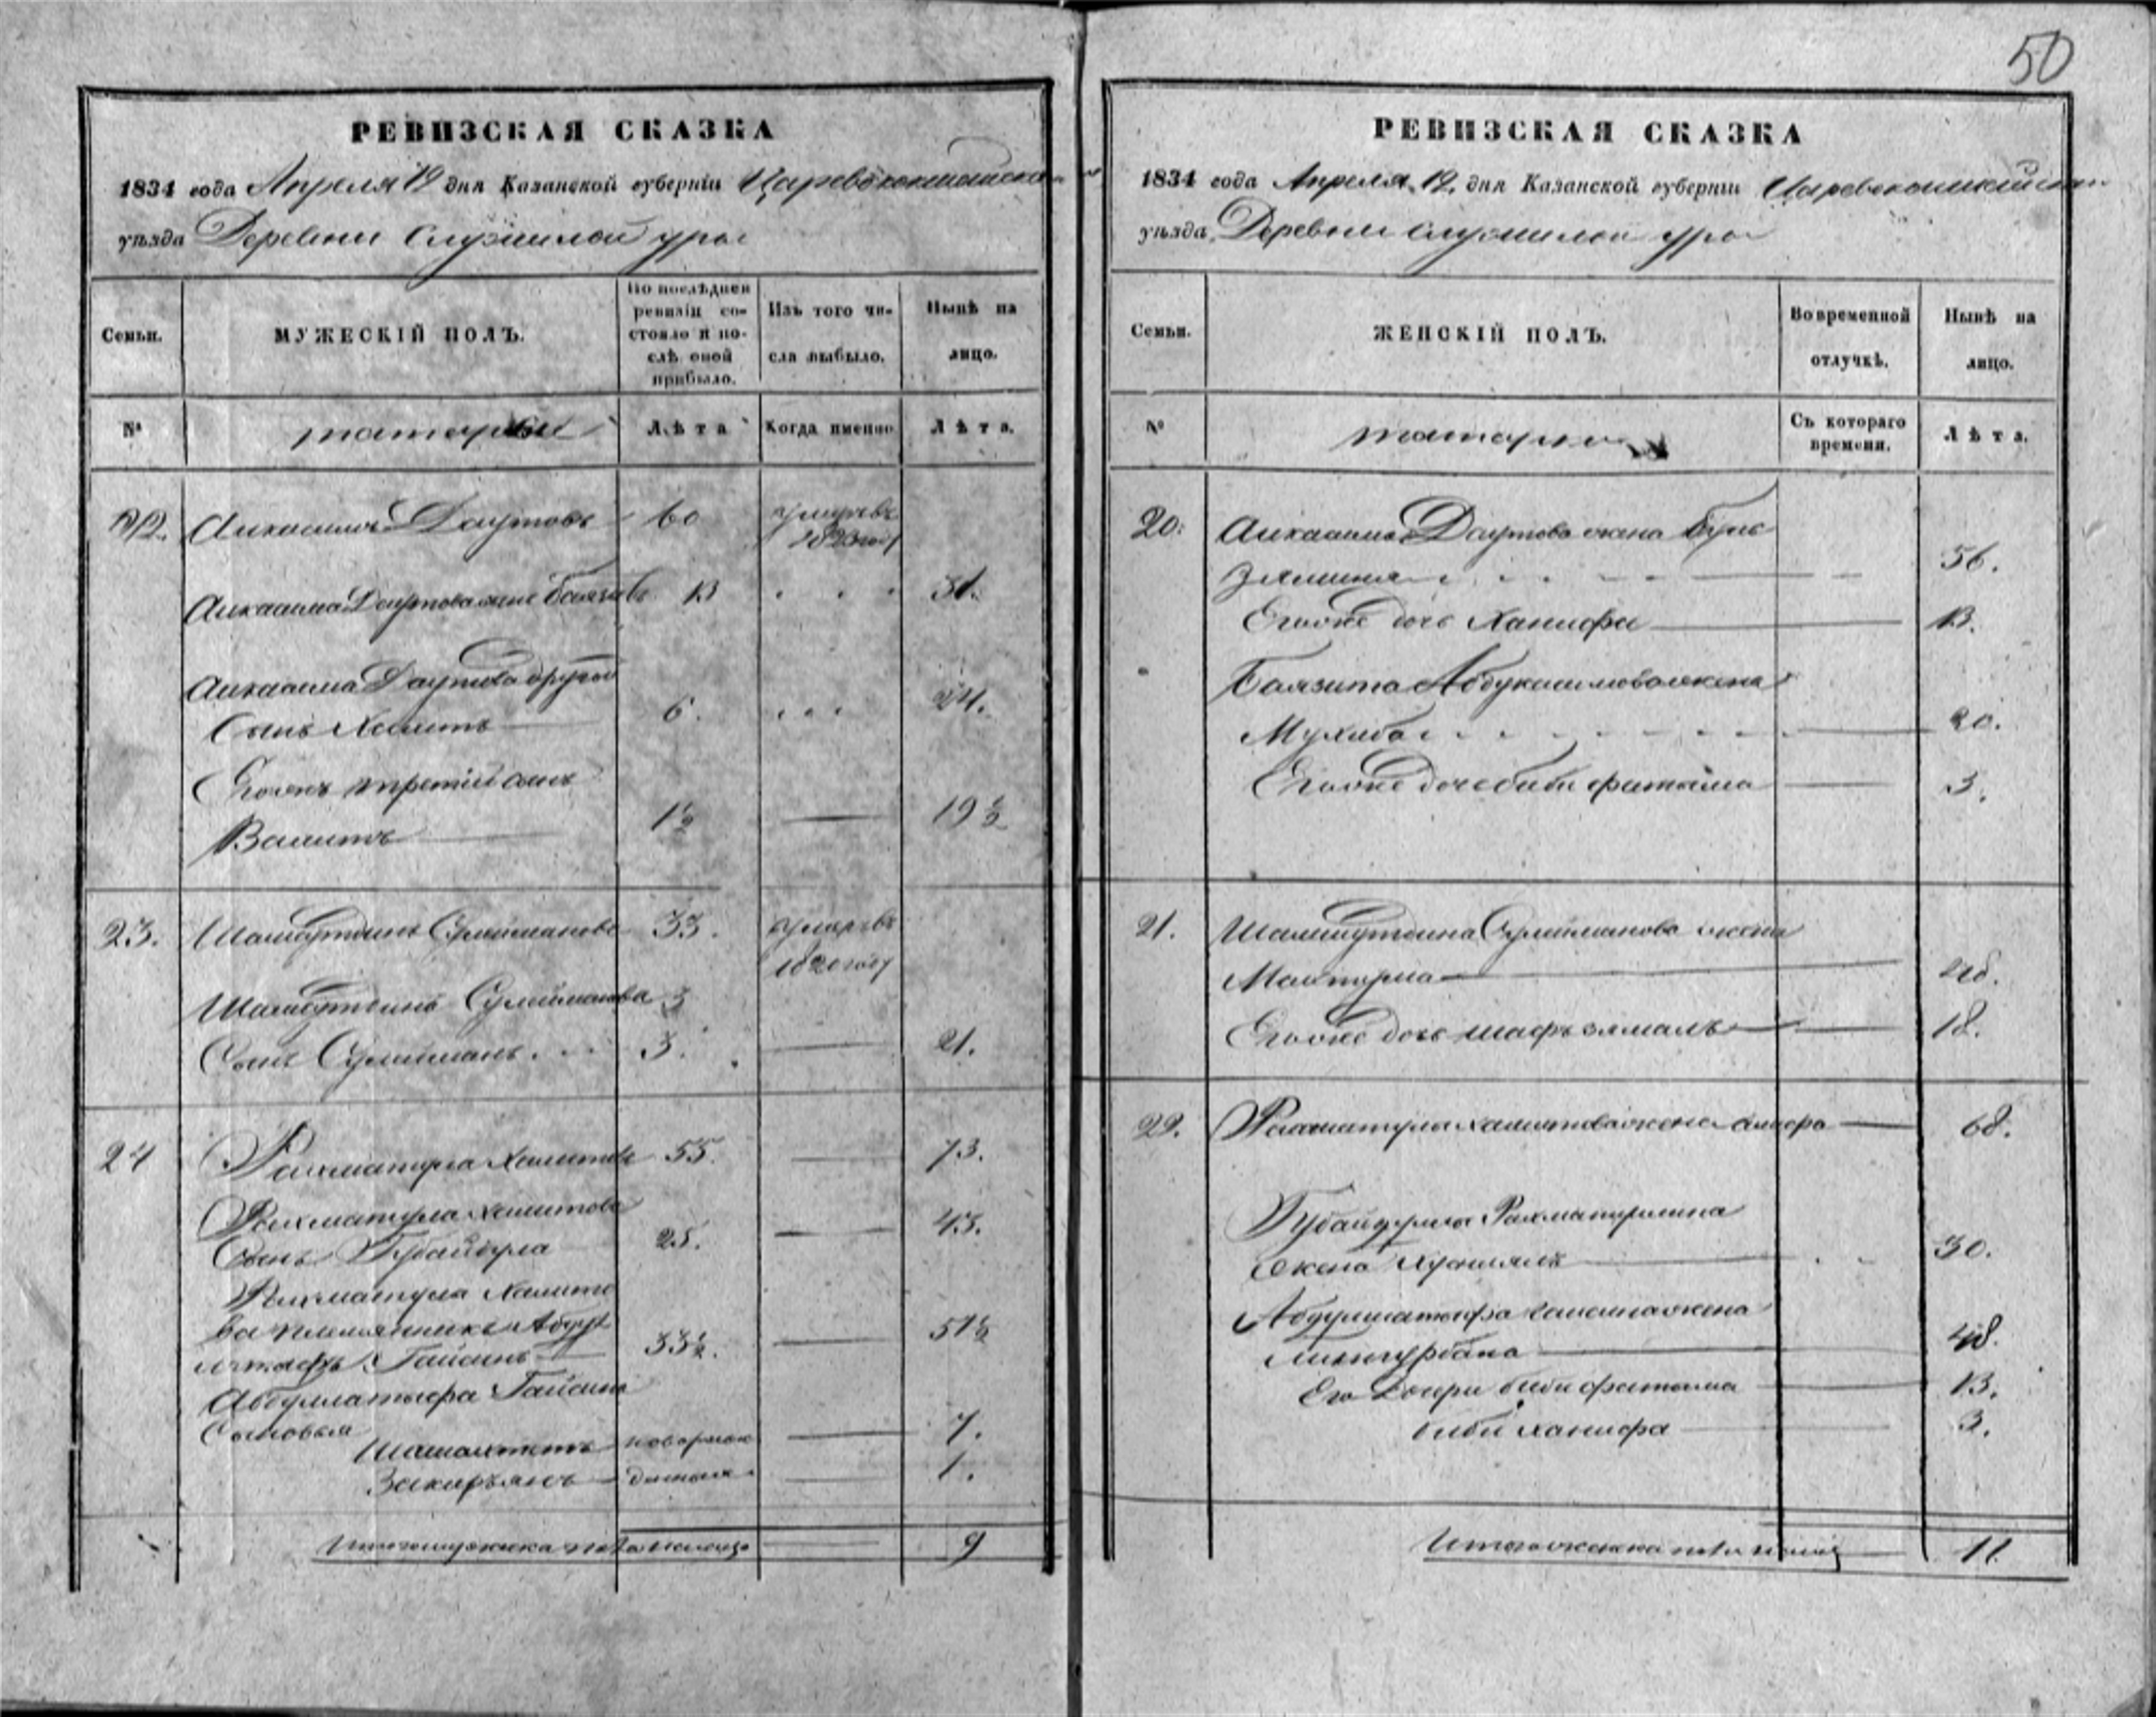 50
РЕВИЗСКАЯ СКАЗКА
1834 года Апреля 12 дня Казанской губерніи Царевококшайскаго
уѣзда Деревни Служилой уры
Семьи.
МУЖЕСКІЙ ПОЛЪ.
По послѣдней ревизіи состояло и послѣ оной прибыло.
Изъ того числа выбыло.
Нынѣ на лицо.
№
татары
Лѣта
Когда именно
Лѣта.
Даутовъ 60 умерь
1823 году
Даутова сынъ Баязитъ 13 31.
Даутова другой
Сынъ Халитъ 6. 24.
Егожъ третій сынъ
Валитъ 1½ 19½
23. Шамсутдинъ Сулеймановъ 33. умеръ
1820 году
Шамсутдина Сулейманова 3
Сынъ Сулейманъ. 3. 21.
24 Рахматулла Халитовъ 55. 73.
Рахматулла Халитова
Сынъ Губайдула 25. 43.
Рахматулла Халито
ва племянникъ Абдул
латыфъ Гайсинъ 33½. 51½
Абдуллатыфа Гайсина
Сыновья
новорож 7.
Закирьянъ денные 1.
Итого мужеска пола налицо 9
РЕВИЗСКАЯ СКАЗКА
1834 года Апреля 12 дня Казанской губерніи Царевококшайскаго
уѣзда Деревни Служилой уры
Семьи.
ЖЕНСКІЙ ПОЛЪ.
Во временной отлучкѣ.
Нынѣ на лицо.
№
татарки
Съ котораго времени.
Лѣта.
20. Даутова жена
56.
Егоже дочь Ханифа 13.
Баязита Абдукаимова жена
Мухиба 20.
Егоже дочь биби фатыма 3.
21. Шамсутдина Сулейманова жена
48.
Егоже дочь 18.
22. Рахматулла Халитова жена 68.
Губайдуллы Рахматуллина
жена 30.
Абдуллатыфа Гайсина жена
48.
Его дочери биби фатыма 13.
биби ханифа 3.
Итого женска пола налицо 11